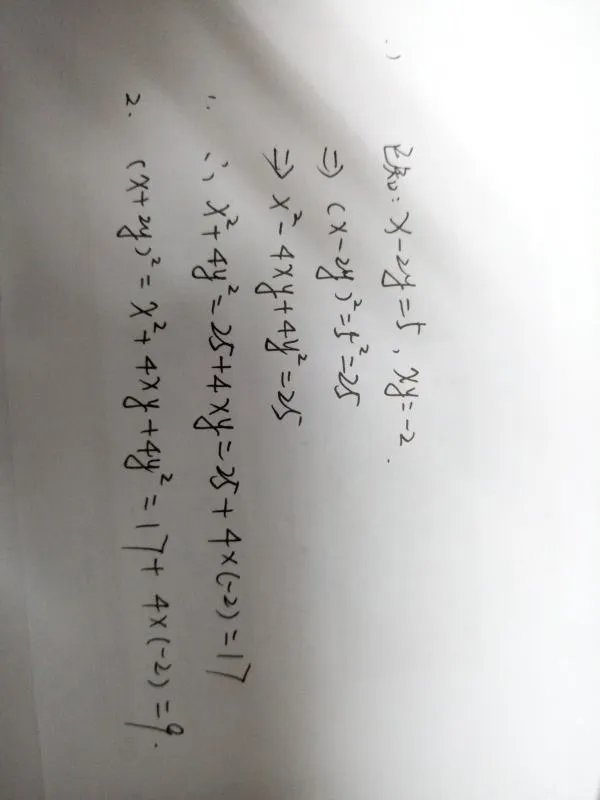 已知: x-2y=5, xy=-2.
⇒ (x-2y)²=5²=25
⇒ x²-4xy+4y²=25
1. ∴ x²+4y²=25+4xy=25+4×(-2)=17
2. (x+2y)²=x²+4xy+4y²=17+4×(-2)=9.